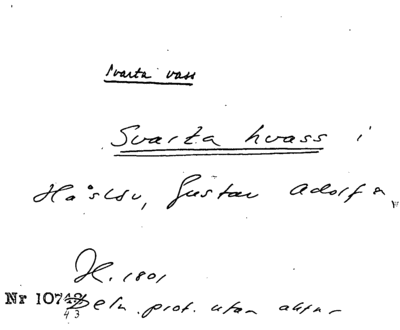 Svarta vass
Svarta hvass i
Håslöv, Gustav Adolf s,
H. 1801
Nr 1074243 Beln. prot. utan aktnr